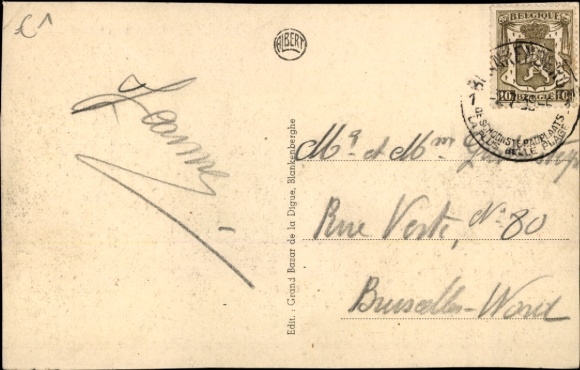 £1
ALBERT
BELGIQUE
10 BELGIË 10
BLANKENBERGE
DE SCHOONSTE BADPLAATS
LA PLUS BELLE PLAGE
Jeanne
Edit.: Grand Bazar de la Digue, Blankenberghe
Mr et Mme
Rue Verte, No 80
Bruxelles-Nord